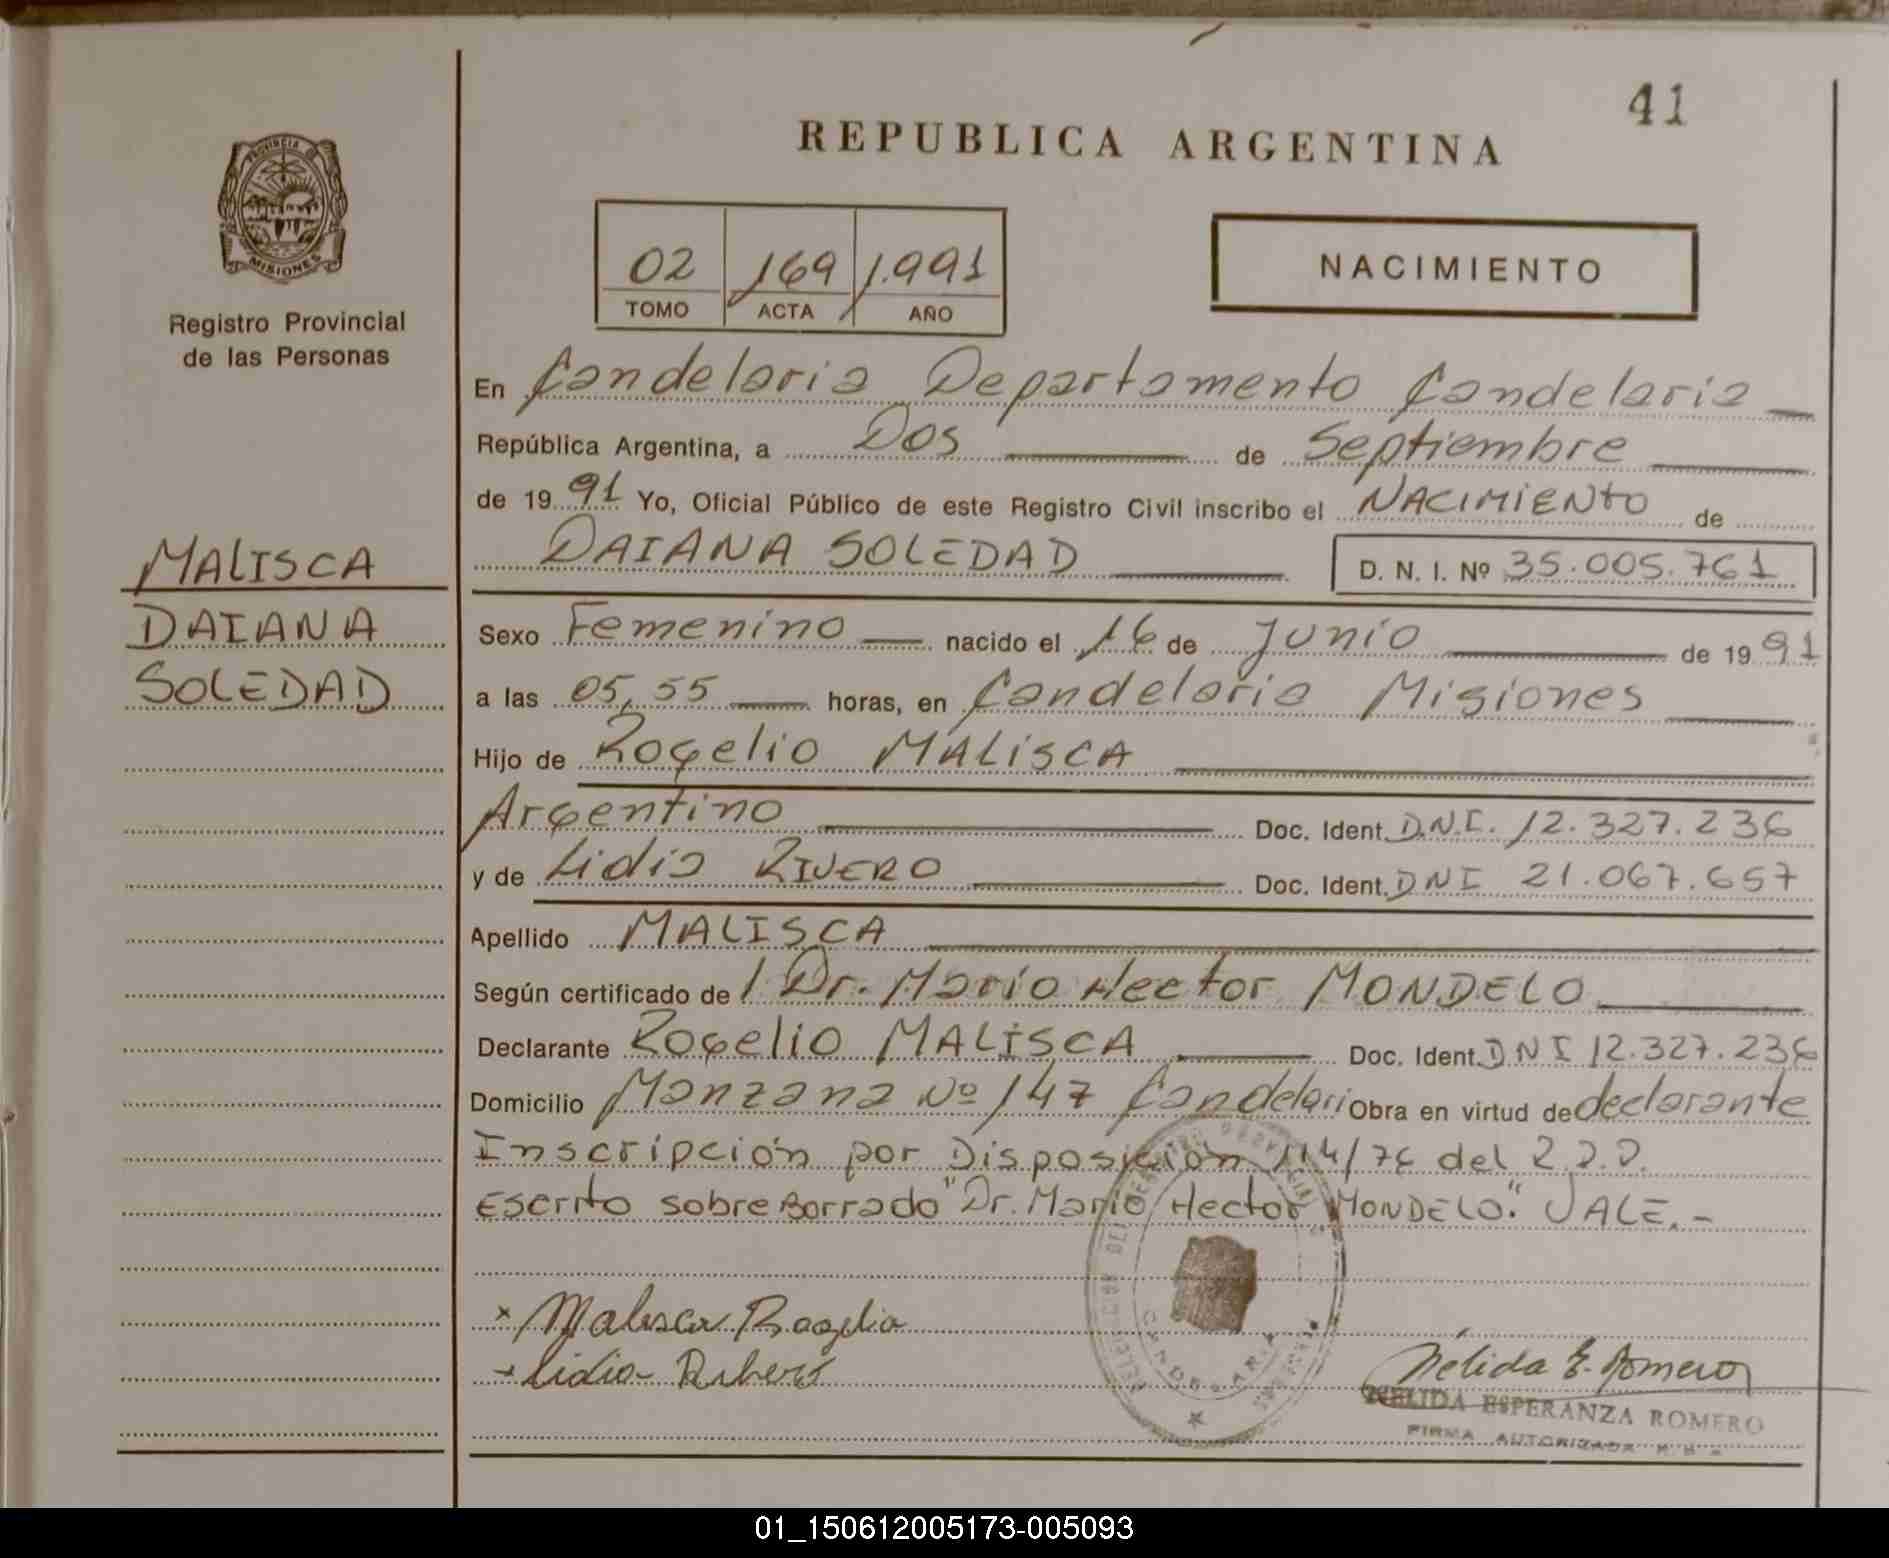 41
REPUBLICA ARGENTINA
PROVINCIA DE
MISIONES
Registro Provincial
de las Personas
02 169 1.991
TOMO ACTA AÑO
NACIMIENTO
En Candelaria Departamento Candelaria
República Argentina, a Dos de Septiembre
de 19 91 Yo, Oficial Público de este Registro Civil inscribo el NACIMIENTO de
DAIANA SOLEDAD D. N. I. Nº 35.005.761
MALISCA
DAIANA
SOLEDAD
Sexo Femenino nacido el 16 de Junio de 19 91
a las 05,55 horas, en Candelaria Misiones
Hijo de Rogelio MALISCA
Argentino Doc. Ident. D.N.I. 12.327.236
y de Lidia RIVERO Doc. Ident. DNI 21.067.657
Apellido MALISCA
Según certificado de Dr. Mario Hector MONDELO
Declarante Rogelio MALISCA Doc. Ident. DNI 12.327.236
Domicilio Manzana Nº 147 Candelari Obra en virtud de declarante
Inscripción por Disposición 114/76 del
Escrito sobre Borrado "Dr. Mario Hector MONDELO." VALE.-
Malisca Rogelio
Lidia Ribero
CANDELARIA
Nélida E. Romero
NELIDA ESPERANZA ROMERO
FIRMA AUTORIZADA
01_150612005173-005093